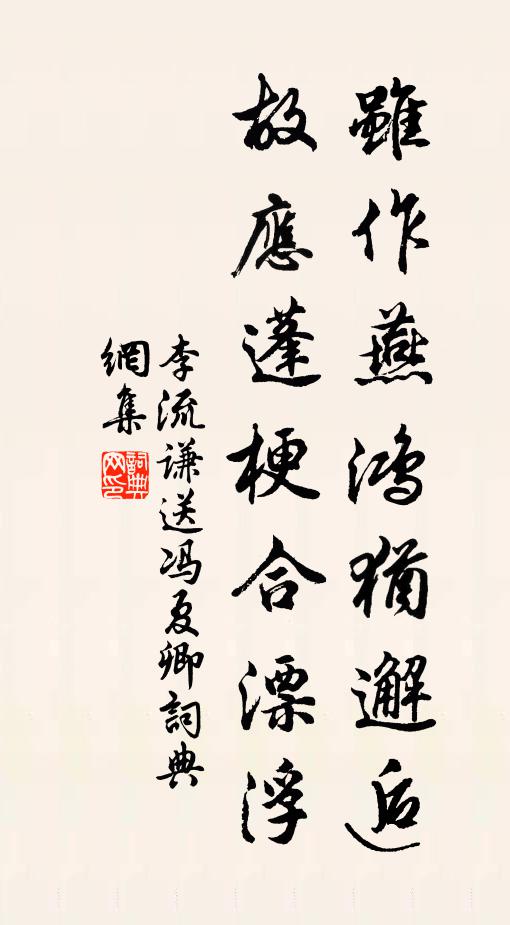 雖作燕鴻猶邂逅
故應蓬梗合漂浮
李流謙送冯夏卿詞典
網集
詞典网印